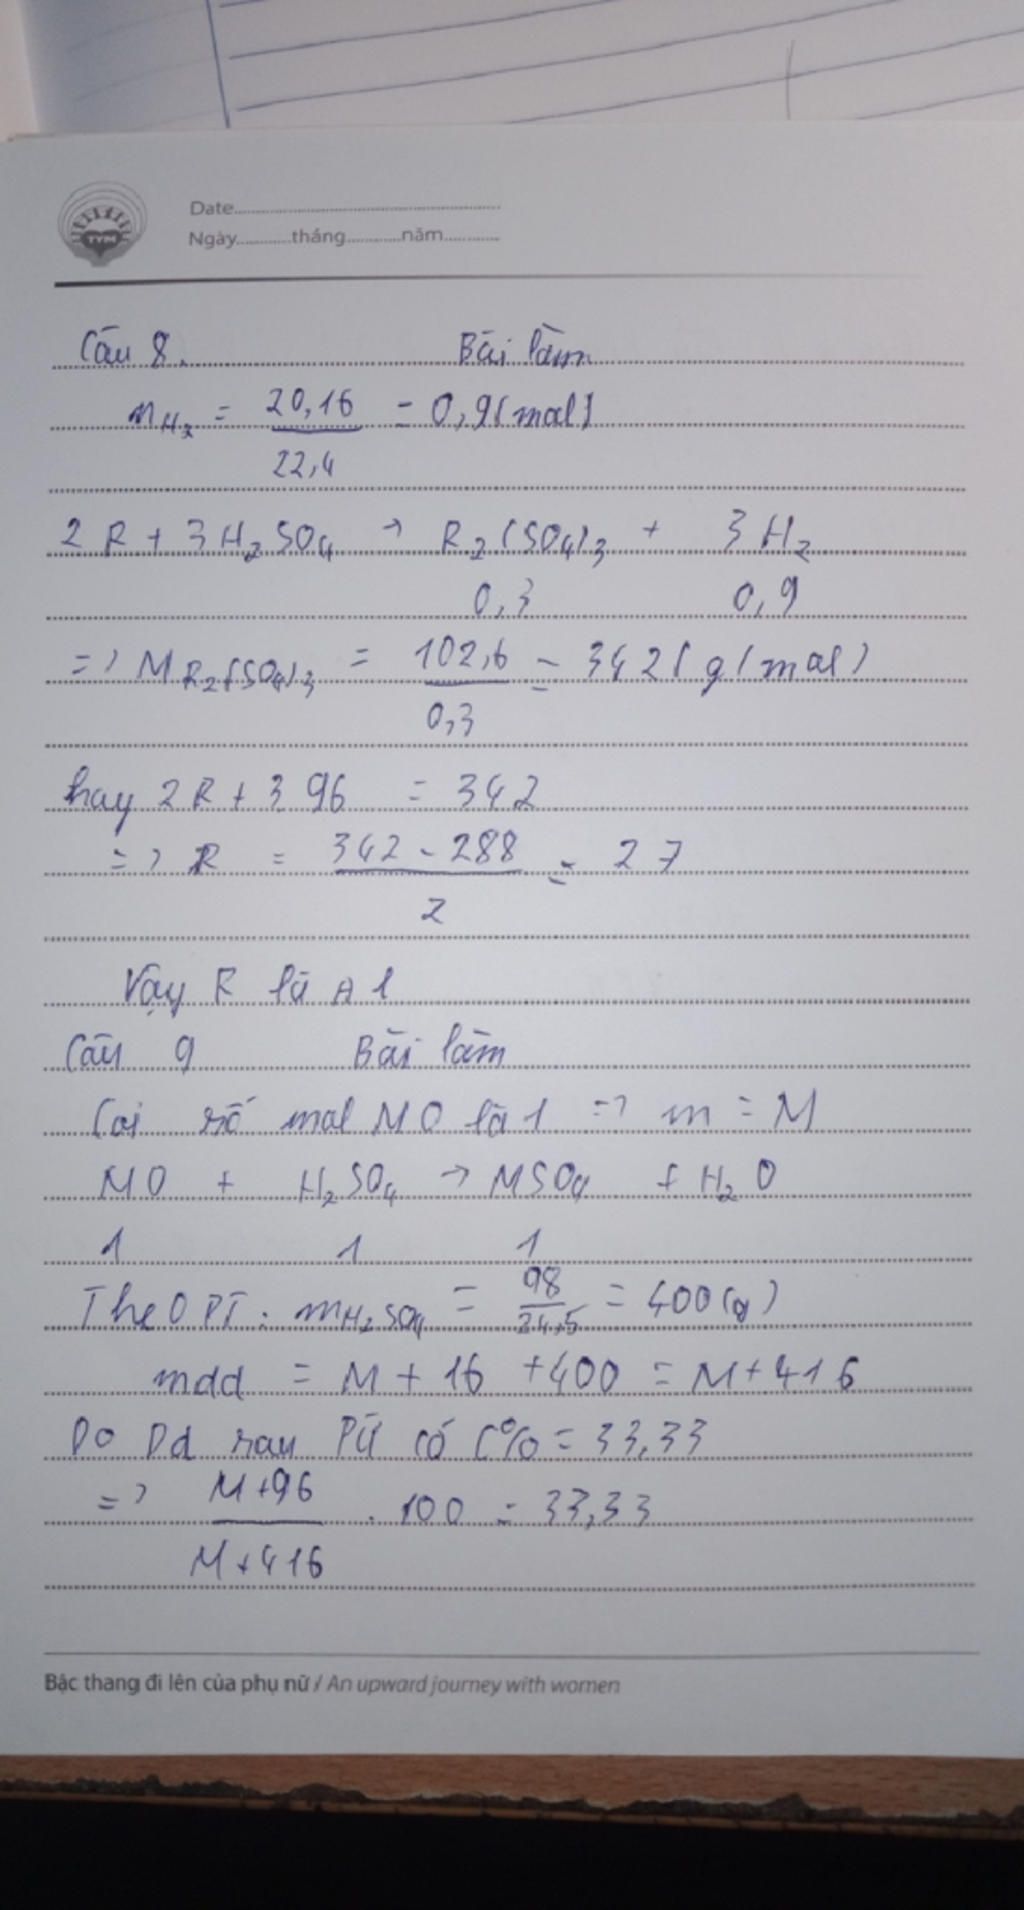 TYM
Date
Ngày tháng năm
Câu 8. Bài làm
nH2 = 20,16 / 22,4 = 0,9 (mol)
2 R + 3 H2SO4 → R2(SO4)3 + 3 H2
0,3 0,9
=> M R2(SO4)3 = 102,6 / 0,3 = 342 (g/mol)
hay 2R + 3.96 = 342
=> R = 342 - 288 / 2 = 27
Vậy R là Al
Câu 9 Bài làm
Coi số mol MO là 1 => m = M
MO + H2SO4 → MSO4 + H2O
1 1 1
Theo PT: mH2SO4 = 98 / 24,5 = 400 (g)
mdd = M + 16 + 400 = M + 416
Do Dd sau PƯ có C% = 33,33
=> M+96 / M+416 . 100 = 33,33
Bậc thang đi lên của phụ nữ / An upward journey with women